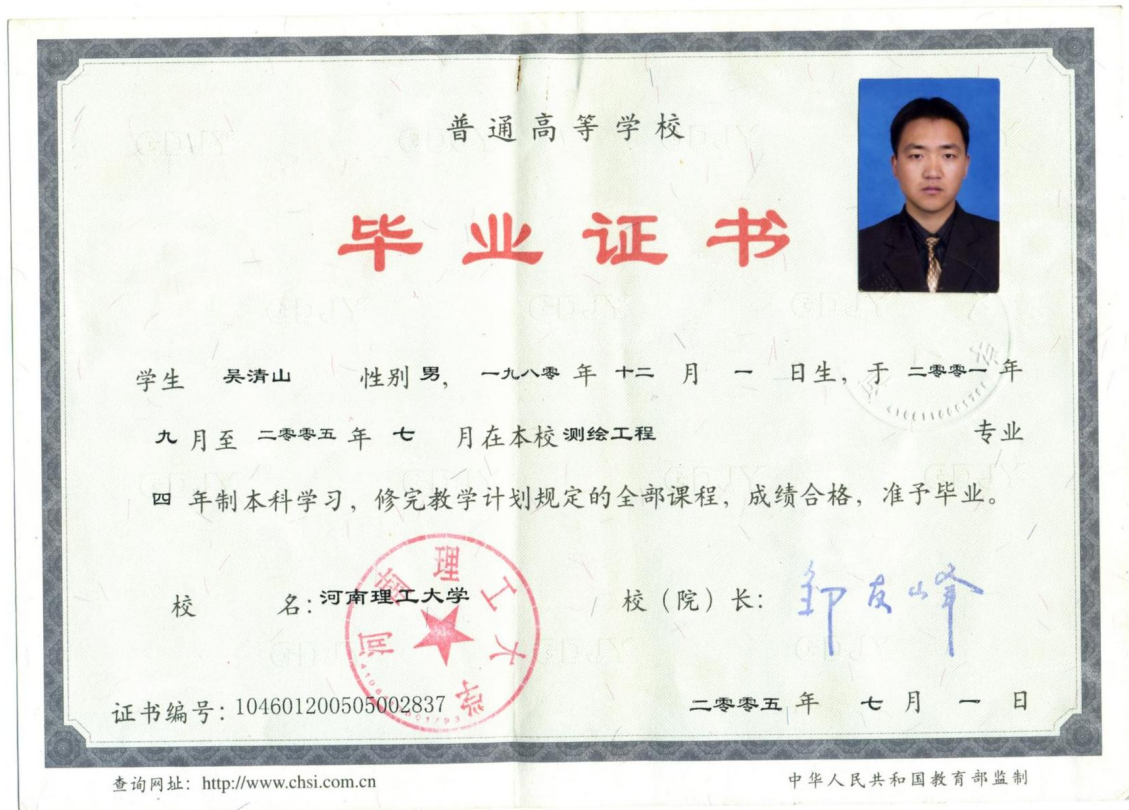 普通高等学校
毕业证书
学生 吴清山 性别 男, 一九八零 年 十二 月 一 日生, 于 二零零一 年
九 月至 二零零五 年 七 月在本校 测绘工程 专业
四 年制本科学习, 修完教学计划规定的全部课程, 成绩合格, 准予毕业。
校 名: 河南理工大学 校（院）长: 邹友峰
河南理工大学
证书编号: 104601200505002837 二零零五 年 七 月 一 日
查询网址: http://www.chsi.com.cn 中华人民共和国教育部监制